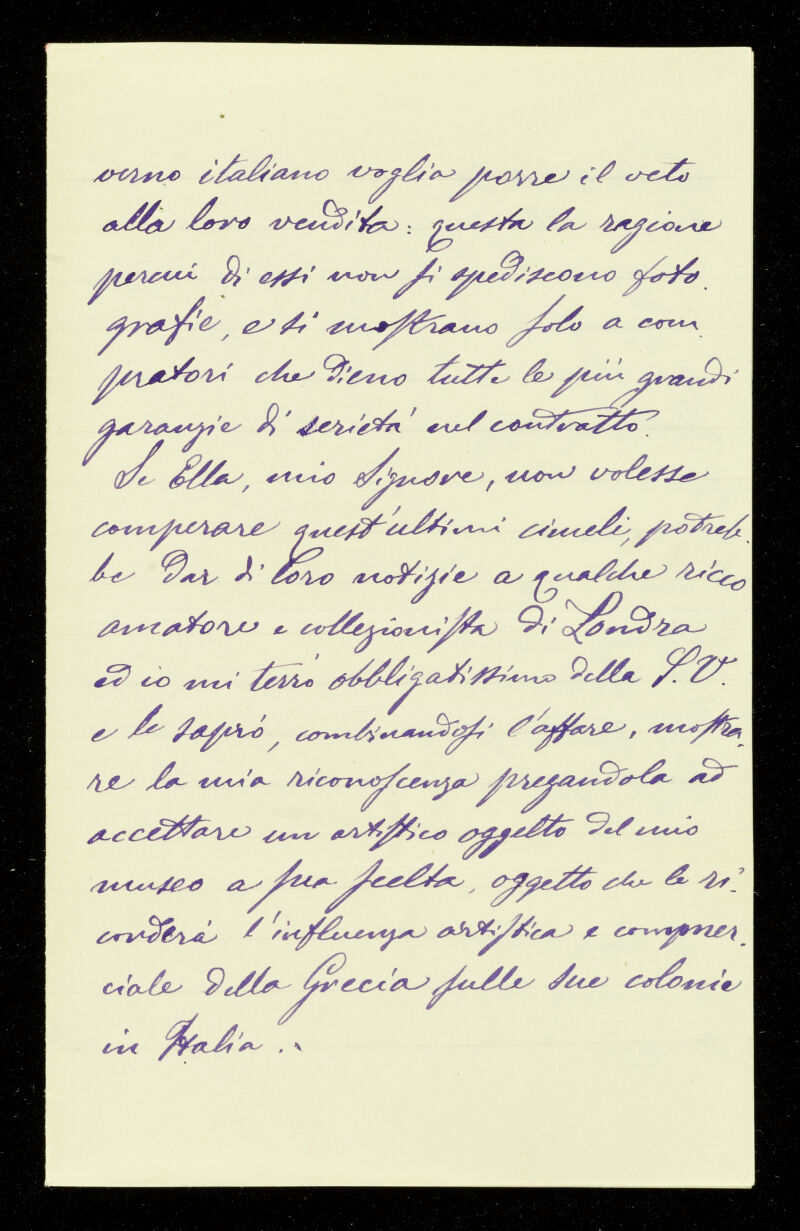 verno italiano voglia porre il veto
alla loro vendita: questa la ragione
percui di essi non si spediscono foto.
grafie, e si mostrano solo a com.
pratori che dieno tutte le più grandi
garanzie di serietá nel contratto.
Se Ella, mio Signore, non volesse
comperare quest'ultimi cimeli, potreb.
be dar di loro notizie a qualche ricco
amatore e collezionista di Londra
ed io mi terró obbligatissimo della S.V.
e le sapró, combinandosi l'affare, mostra.
re la mia riconoscenza pregandola ad
accettare un artistico oggetto del mio
museo a sua scelta, oggetto che le ri.
corderá l'influenza artistica e commer.
ciale della Grecia sulle sue colonie
in Italia..